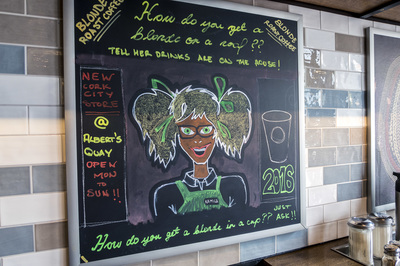 BLONDE
ROAST COFFEE
How do you get a
blonde on a roof ??
BLONDE
ROAST COFFEE
TELL HER DRINKS ARE ON THE HOUSE !
NEW
CORK
CITY
STORE
@
ALBERT'S
QUAY
OPEN
MON
TO
SUN !!
2016
JUST
ASK !!
How do you get a blonde in a cup ??